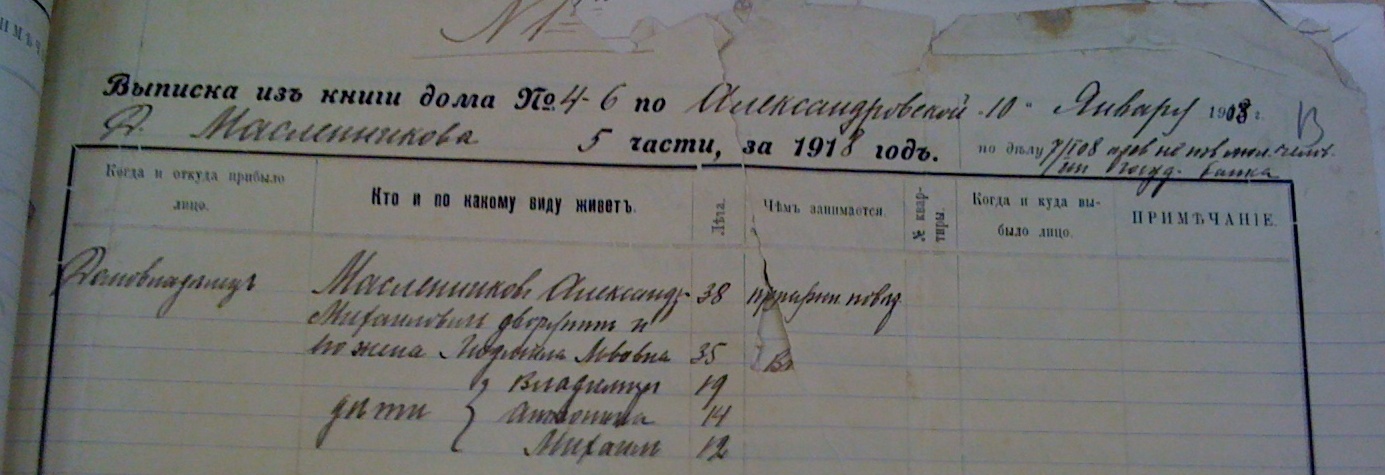 ИМѢЧ
N 1
Выписка изъ книги дома № 4-6 по Александровской 10 Января 1908 г.
Д. Масленникова 5 части, за 1918 годъ.
по дѣлу
Госуд. банка
В
Когда и откуда прибыло лицо.
Кто и по какому виду живетъ.
Лѣта.
Чѣмъ занимается.
№ квартиры.
Когда и куда выбыло лицо.
ПРИМѢЧАНІЕ.
Домовладѣлецъ Масленниковъ Александръ 38
Михаиловичъ дворянинъ и
его жена Людмила Львовна 35
Владимиръ 19
дѣти Антонина 14
Михаилъ 12